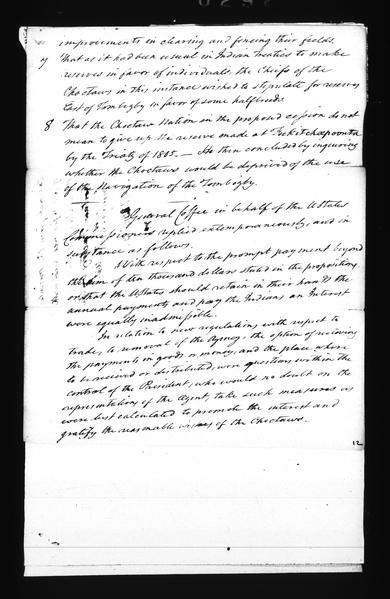 improvements in clearing and fencing their fields.
7 That as it had been usual in Indian treaties to make
reserves in favor of individuals, the Chiefs of the
Choctaws in this instance wished to stipulate for reserves
East of Tombigby in favor of some halfbreeds.
8 That the Choctaw Nation in the proposed cession do not
mean to give up the reserve made at
by the Treaty of 1805. — He then concluded by inquiring
whether the Choctaws would be deprived of the use
of the Navigation of the Tombigby.
General Coffee in behalf of the UStates
Commissioners replied extemporaneously, and in
substance as follows.
With respect to the prompt payment beyond
the sum of ten thousand dollars stated in the proposition,
or that the UStates should retain in their hands the
annual payments and pay the Indians an Interest
were equally inadmissible.
In relation to new regulations with respect to
trade, to removal of the Agency, the option of receiving
the payments in goods or money, and the place where
to be received or distributed, were questions within the
control of the President, who would no doubt on the
representations of the Agent, take such measures as
were best calculated to promote the interest and
gratify the reasonable wishes of the Choctaws.
12